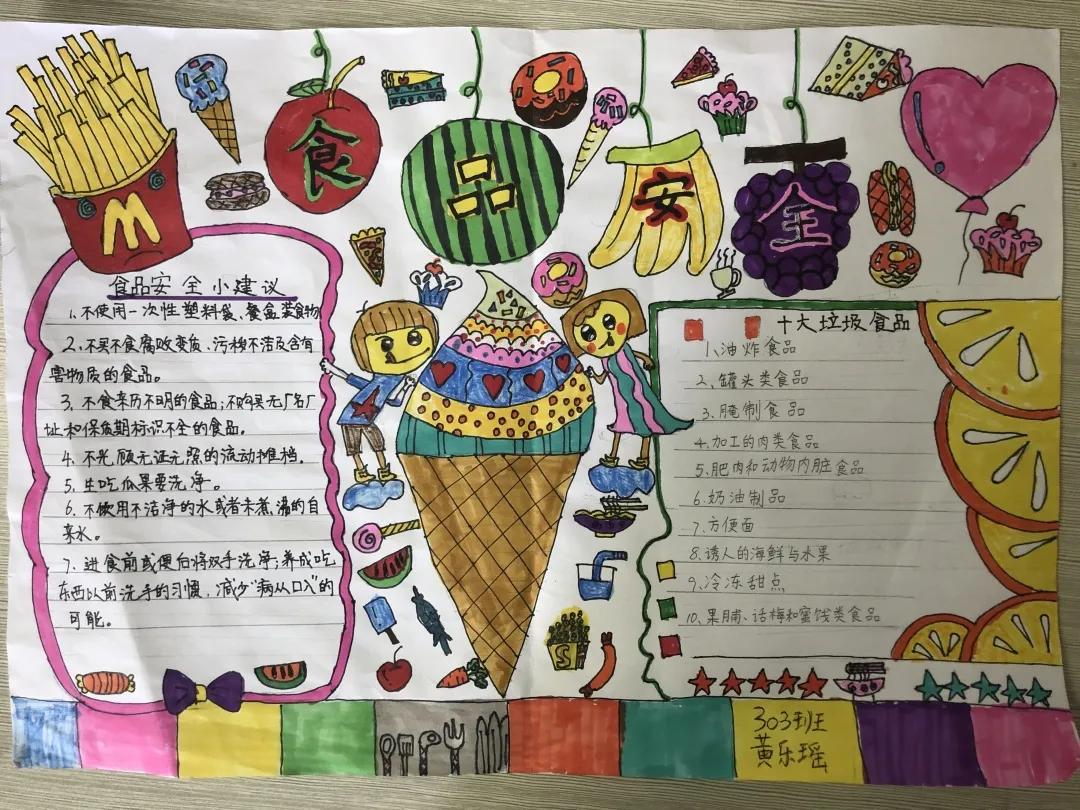 食品安全
食品安全小建议
1、不使用一次性塑料袋、餐盒装食物
2、不买不食腐败变质、污秽不洁及含有
害物质的食品。
3、不食来历不明的食品;不购买无厂名厂
址和保质期标识不全的食品。
4、不光顾无证无照的流动摊档。
5、生吃瓜果要洗净。
6、不饮用不洁净的水或者未煮沸的自
来水。
7、进食前或便后将双手洗净;养成吃
东西以前洗手的习惯,减少"病从口入"的
可能。
十大垃圾食品
1、油炸食品
2、罐头类食品
3、腌制食品
4、加工的肉类食品
5、肥肉和动物内脏食品
6、奶油制品
7、方便面
8、诱人的海鲜与水果
9、冷冻甜点
10、果脯、话梅和蜜饯类食品
M
S
303班
黄乐瑶